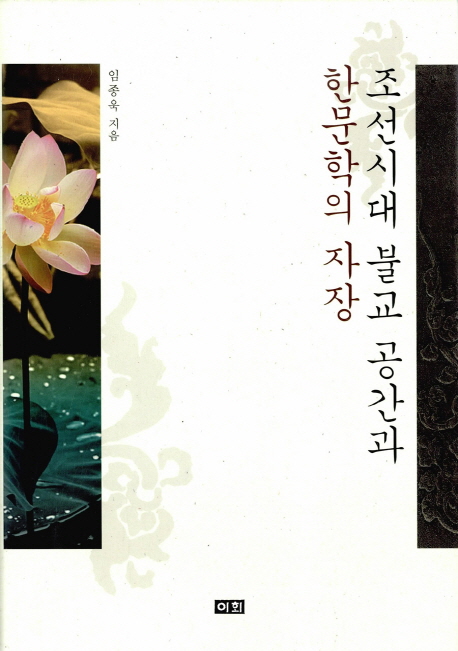 조선시대 불교 공간과
한문학의 자장
임종욱 지음
이회